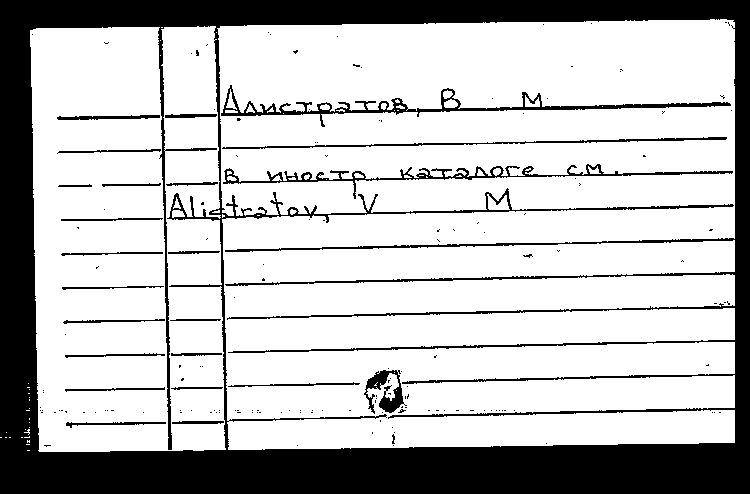 Алистратов, В М
в иностр каталоге см.
Alistratov, V M